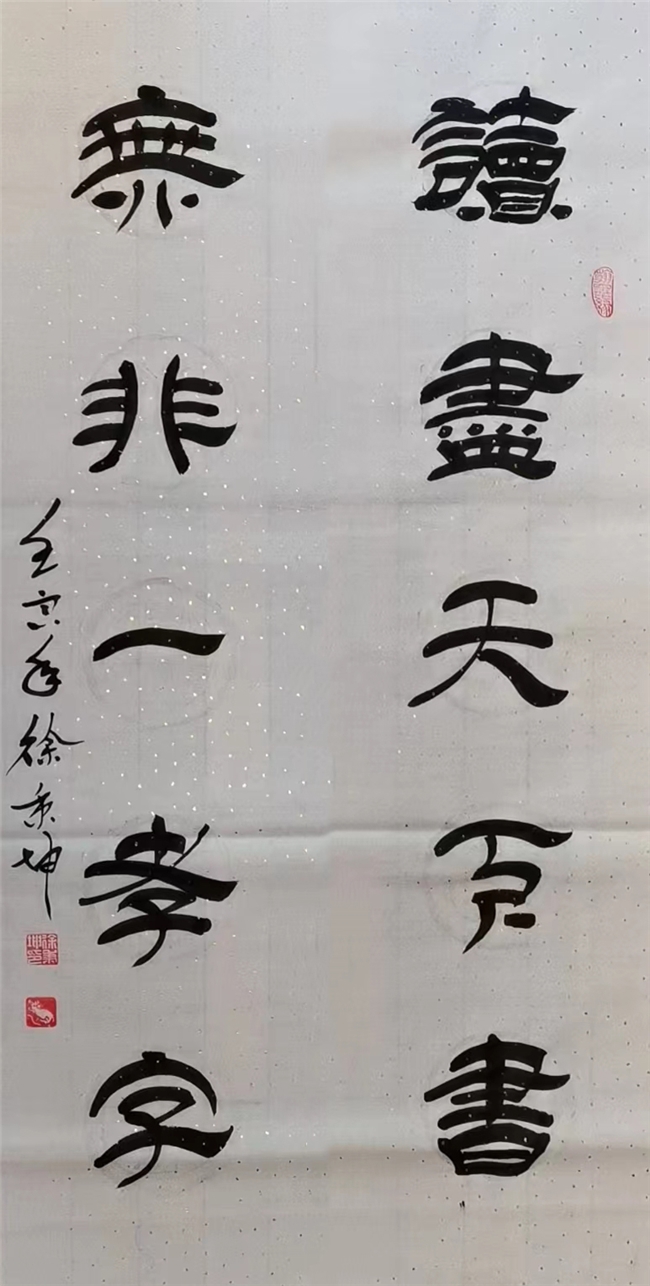 讀盡天下書
無非一孝字
壬寅年徐秉坤
徐秉坤印